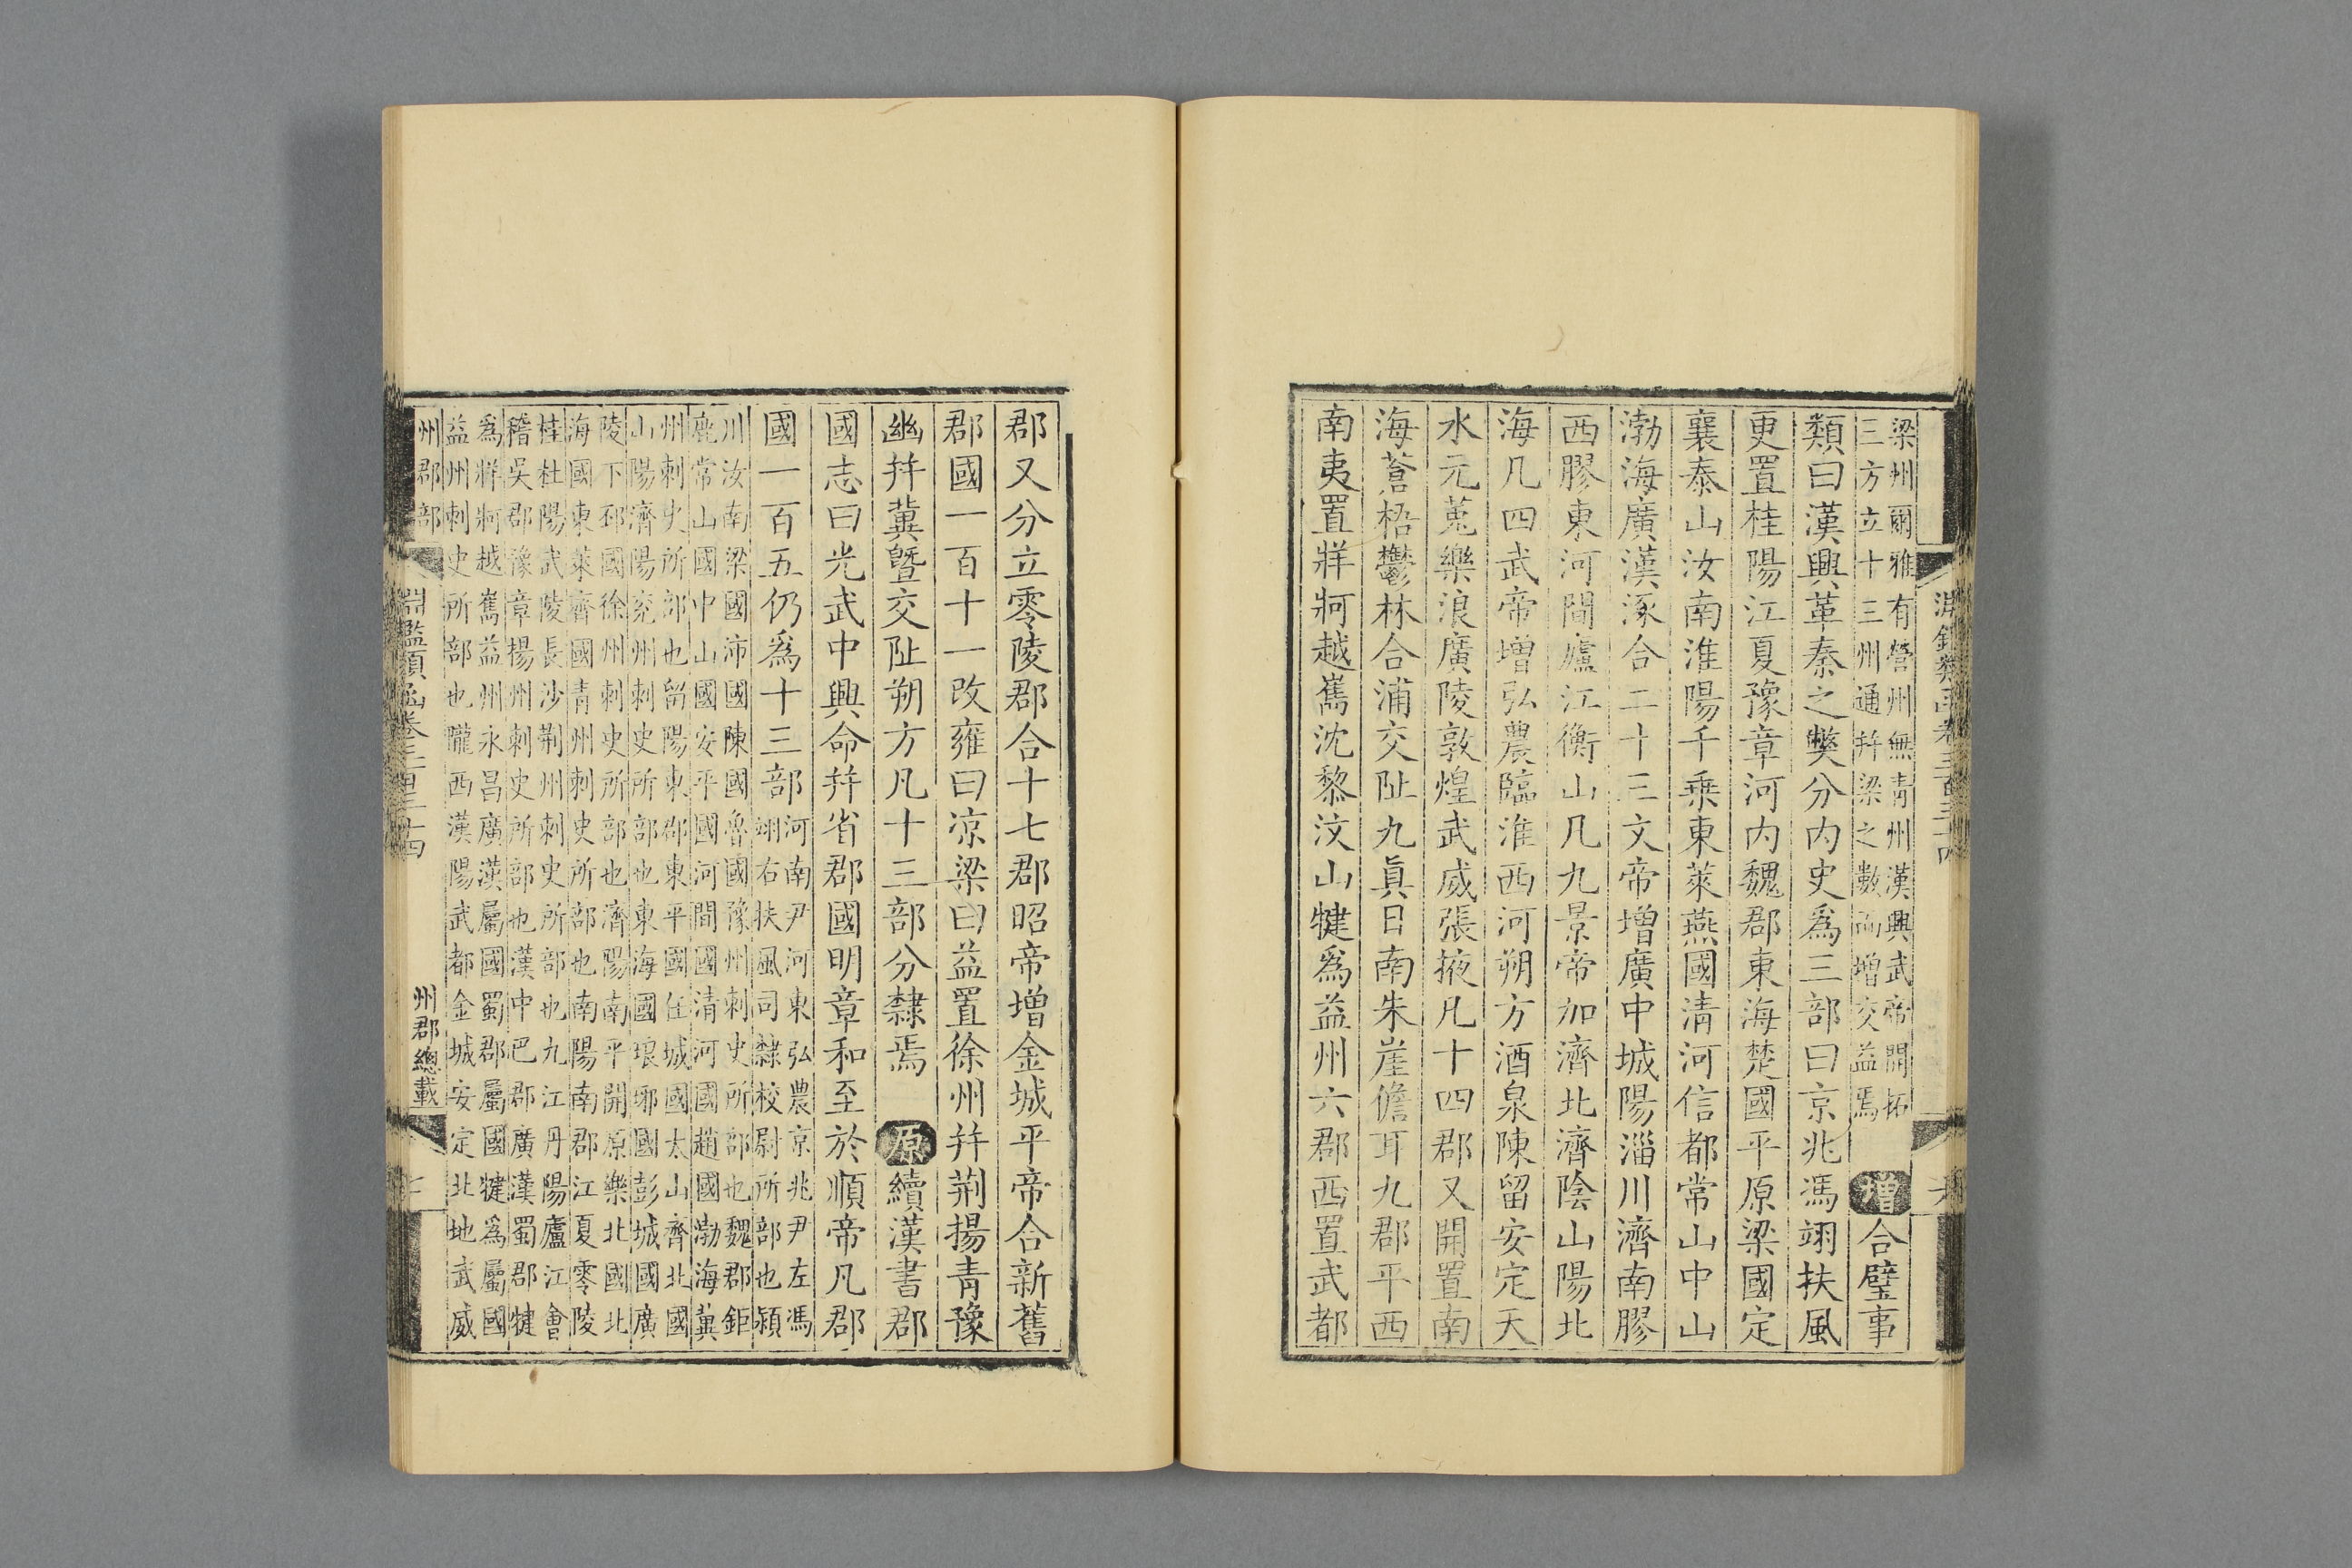 梁州爾雅有營州無靑州漢興武帝開拓
三方立十三州通幷梁之數而增交益焉
增合璧事
類曰漢興革秦之獘分內史爲三部曰京兆馮翊扶風
更置桂陽江夏豫章河內魏郡東海楚國平原梁國定
襄泰山汝南淮陽千乗東萊燕國清河信都常山中山
渤海廣漢涿合二十三文帝增廣中城陽淄川濟南膠
西膠東河間廬江衡山凡九景帝加濟北濟陰山陽北
海凡四武帝增弘農臨淮西河朔方酒泉陳留安定天
水元菟樂浪廣陵敦煌武威張掖凡十四郡又開置南
海蒼梧鬱林合浦交阯九眞日南朱崖儋耳九郡平西
南夷置牂牁越嶲沈黎汶山犍爲益州六郡西置武都
郡又分立零陵郡合十七郡昭帝增金城平帝合新舊
郡國一百十一改雍曰凉梁曰益置徐州幷荆揚靑豫
幽幷冀暨交阯朔方凡十三部分隸焉 原續漢書郡
國志曰光武中興命幷省郡國明章和至於順帝凡郡
國一百五仍爲十三部
河南尹河東弘農京兆尹左馮
翊右扶風司隸校尉所部也潁
川汝南梁國沛國陳國魯國豫州刺史所部也魏郡鉅
鹿常山國中山國安平國河間國清河國趙國渤海冀
州刺史所部也留陽東郡東平國任城國太山濟北國
山陽濟陽兖州刺史所部也東海國琅邪國彭城國廣
陵下邳國徐州刺史所部也濟陽南平開原樂北國北
海國東萊齊國青州刺史所部也南陽南郡江夏零陵
桂杜陽武陵長沙荆州刺史所部也九江丹陽廬江會
稽吳郡豫章楊州刺史所部也漢中巴郡廣漢蜀郡犍
爲牂牁越嶲益州永昌廣漢屬國蜀郡屬國犍爲屬國
益州刺史所部也隴西漢陽武都金城安定北地武威
州郡部
淵鑑類函卷三百三十四
州郡總載